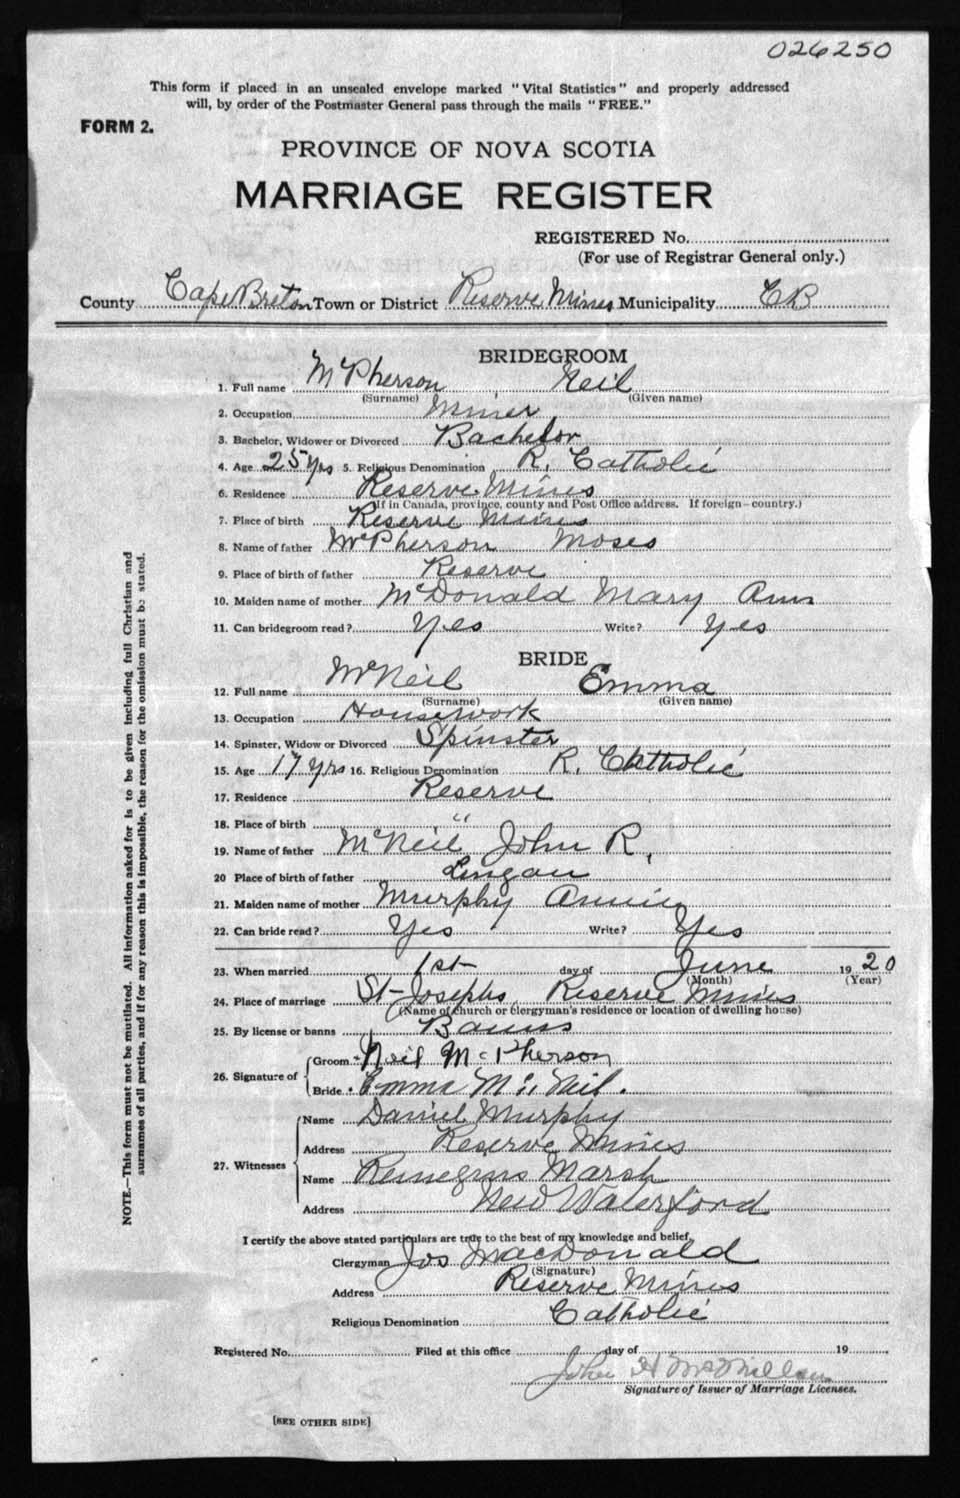 026250
This form if placed in an unsealed envelope marked "Vital Statistics" and properly addressed
will, by order of the Postmaster General pass through the mails "FREE."
FORM 2.
PROVINCE OF NOVA SCOTIA
MARRIAGE REGISTER
REGISTERED No.
(For use of Registrar General only.)
County Cape Breton Town or District Reserve Mines Municipality CB
BRIDEGROOM
1. Full name McPherson Neil
(Surname) (Given name)
2. Occupation Miner
3. Bachelor, Widower or Divorced Bachelor
4. Age 25 yrs 5. Religious Denomination R. Catholic
6. Residence Reserve Mines
(If in Canada, province, county and Post Office address. If foreign-country.)
7. Place of birth Reserve Mines
8. Name of father McPherson Moses
9. Place of birth of father Reserve
10. Maiden name of mother McDonald Mary Ann
11. Can bridegroom read? Yes Write? Yes
BRIDE
12. Full name McNeil Emma
(Surname) (Given name)
13. Occupation Housework
14. Spinster, Widow or Divorced Spinster
15. Age 17 yrs 16. Religious Denomination R. Catholic
17. Residence Reserve
18. Place of birth "
19. Name of father McNeil John R.
20 Place of birth of father Lingan
21. Maiden name of mother Murphy Annie
22. Can bride read? Yes Write? Yes
23. When married 1st day of June 1920
(Month) (Year)
24. Place of marriage St-Josephs, Reserve Mines
(Name of church or clergyman's residence or location of dwelling house)
25. By license or banns Banns
26. Signature of Groom Neil McPherson
Bride Emma McNeil.
27. Witnesses Name Daniel Murphy
Address Reserve Mines
Name Marsh
Address New Waterford
I certify the above stated particulars are true to the best of my knowledge and belief.
Clergyman Jos MacDonald
(Signature)
Address Reserve Mines
Religious Denomination Catholic
Registered No. Filed at this office day of 19
John H McMillan
Signature of Issuer of Marriage Licenses.
[SEE OTHER SIDE]
NOTE.—This form must not be mutilated. All information asked for is to be given including full Christian and
surnames of all parties, and if for any reason this is impossible, the reason for the omission must be stated.